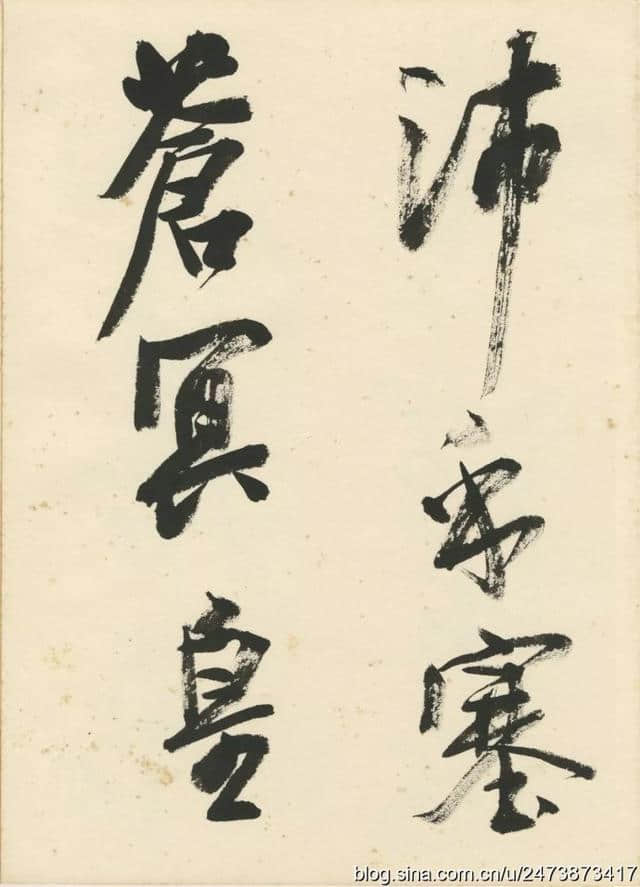 沛乎塞
蒼冥皇
blog.sina.com.cn/u/2473873417